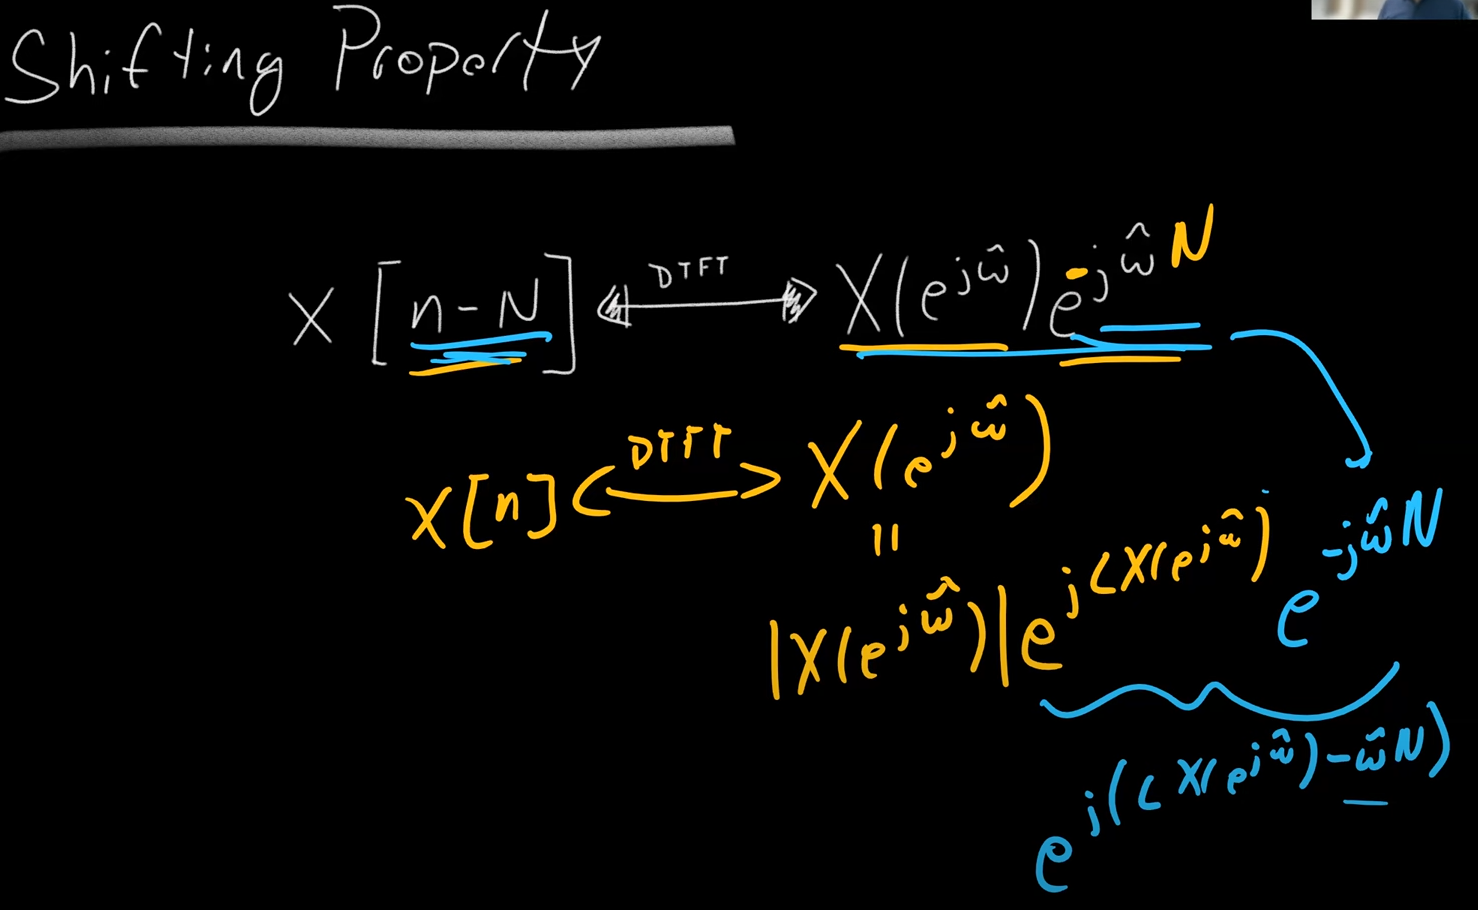 Shifting Property
X[n-N] DTFT X(e^{jω̂})e^{-jω̂N}
X[n] DTFT X(e^{jω̂})
=
|X(e^{jω̂})|e^{j∠X(e^{jω̂})} e^{-jω̂N}
e^{j(∠X(e^{jω̂})-ω̂N)}